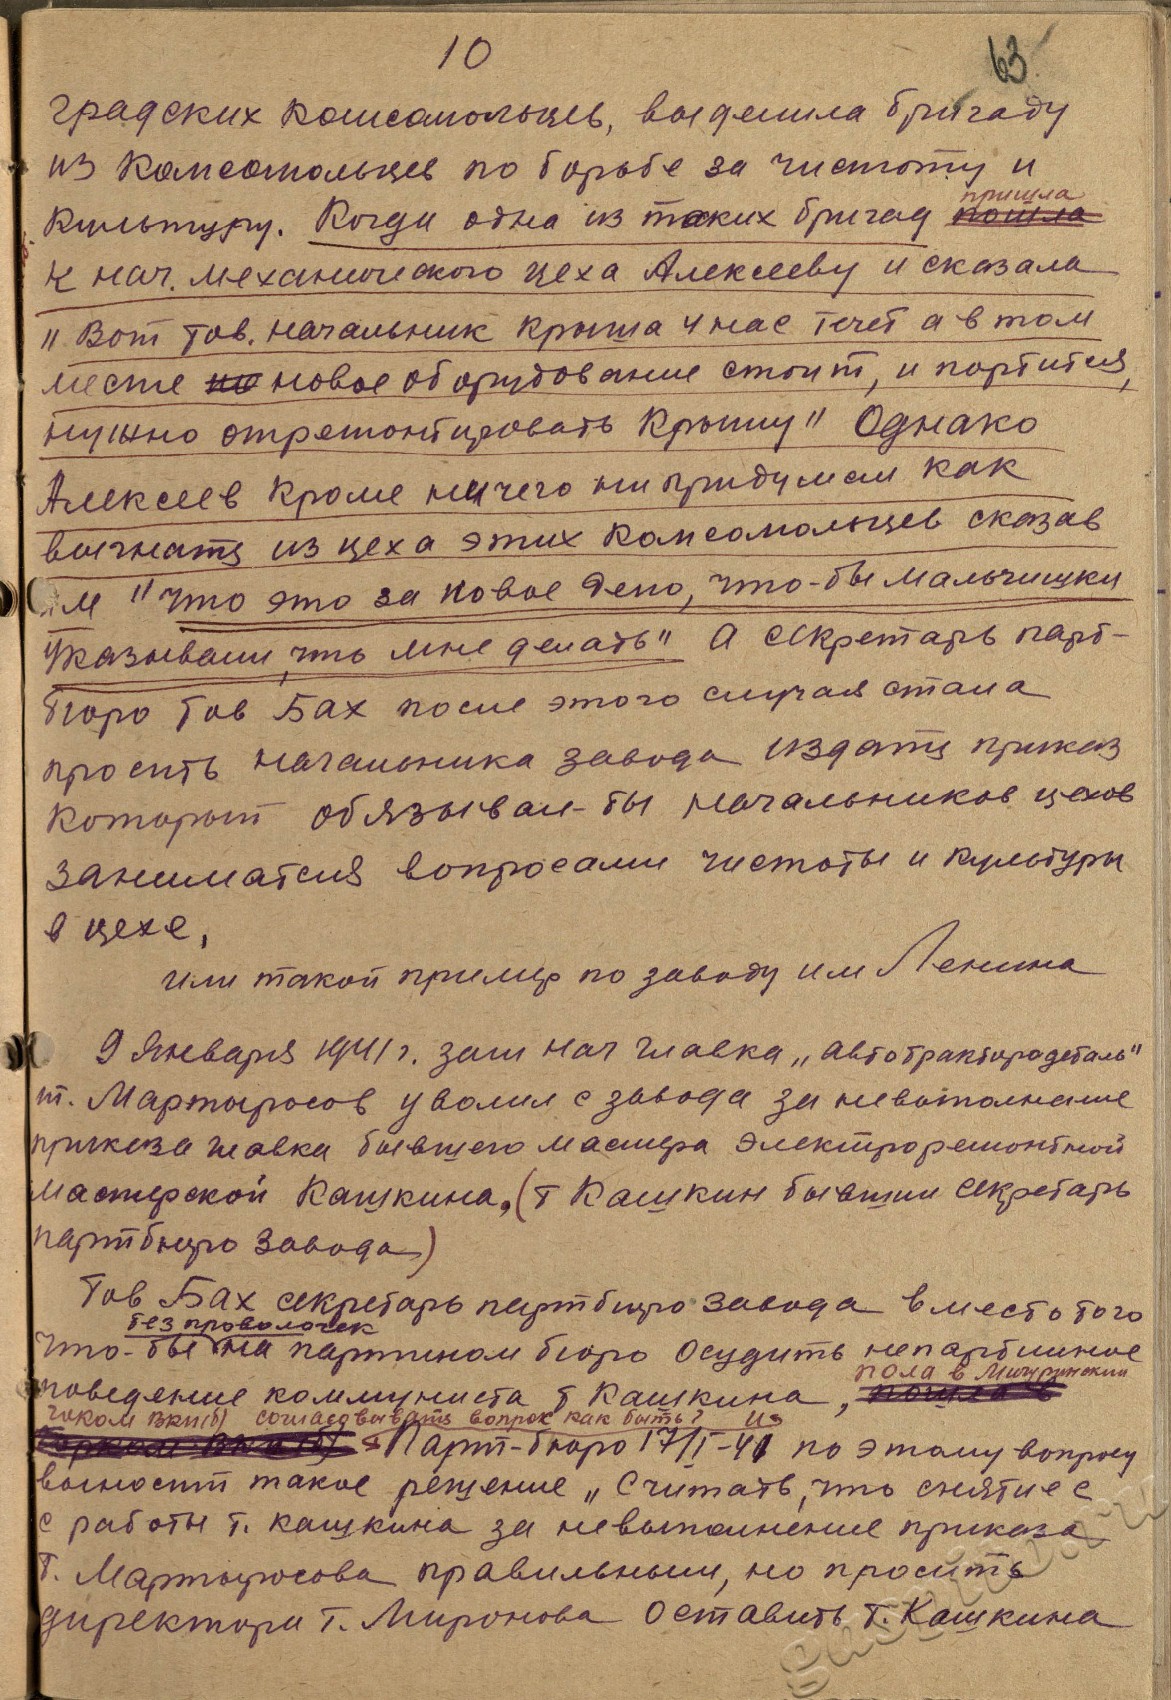 10
63
градских комсомольцев, выделила бригаду
из комсомольцев по борьбе за чистоту и
культуру. Когда одна из таких бригад пошла
пришла
к нач. механического цеха Алексееву и сказала
"Вот тов. начальник крыша у нас течет а в том
месте но новое оборудование стоит, и портится,
нужно отремонтировать крышу" Однако
Алексеев кроме ничего ни придумал как
выгнать из цеха этих комсомольцев сказав
им "что это за новое дело, что-бы мальчишки
указывали, что мне делать" А секретарь парт-
бюро тов Бах после этого случая стала
просить начальника завода издать приказ
который обязывал-бы начальников цехов
заниматся вопросами чистоты и культуры
в цехе,
или такой пример по заводу им Ленина
9 января 1941 г. зам нач главка "Автотрактородеталь"
т. Мартыросов уволил с завода за невыполнение
приказа главка бывшего мастера электроремонтной
мастерской Кашкина, (т Кашкин бывший секретарь
партбюро завода)
Тов Бах секретарь партбюро завода вместо того
без проволочек
что-бы на партийном бюро осудить непартийное
поведение коммуниста т Кашкина, пошла в
пола в Мичуринский
гиком ВКП(б) согласовывать вопрос как быть? из
Горком ВКП(б) Парт-бюро 17/I-41 по этому вопросу
выносит такое решение "Считать, что снятие с
с работы т. Кашкина за невыполнение приказа
т. Мартыросова правильным, но просить
директора т. Миронова оставить т. Кашкина